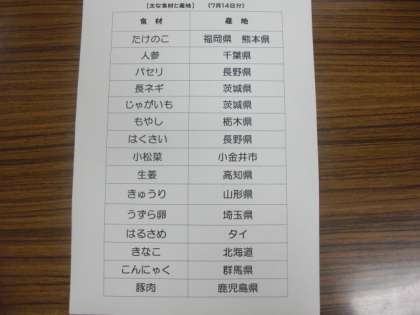 【主な食材と産地】 (7月14日分)
食 材 産 地
たけのこ 福岡県 熊本県
人参 千葉県
パセリ 長野県
長ネギ 茨城県
じゃがいも 茨城県
もやし 栃木県
はくさい 長野県
小松菜 小金井市
生姜 高知県
きゅうり 山形県
うずら卵 埼玉県
はるさめ タイ
きなこ 北海道
こんにゃく 群馬県
豚肉 鹿児島県